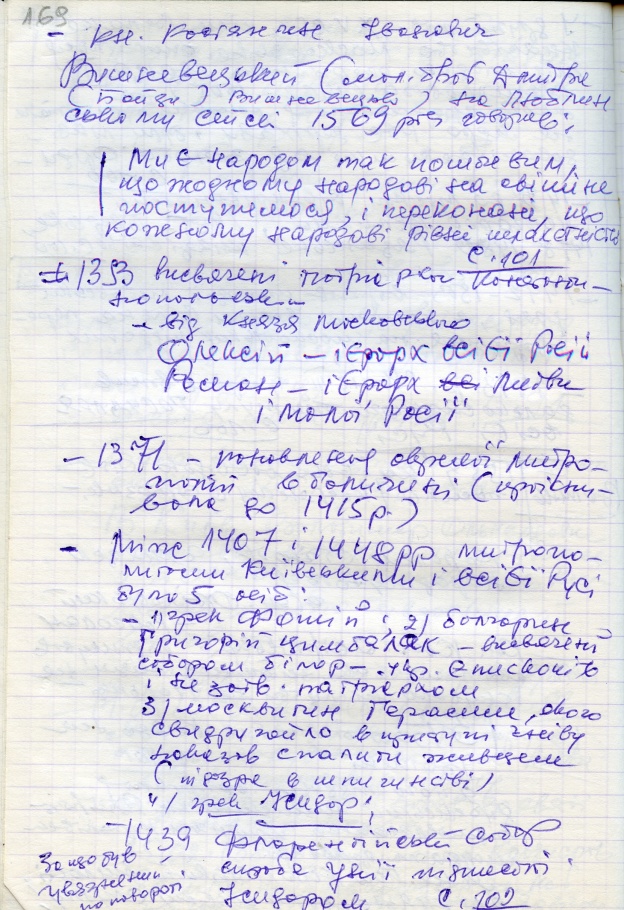 169
- кн. Костянтин Іванович
Вишневецький (молод. брат Дмитра
(Байди) Вишневецького) на Люблин
ському сеймі 1569 р.
Ми є народом так поштивим,
що жодному народові на світі не
поступимося, і переконані, що
кожному народові рівні шляхетністю
С. 101
1353 висвячені патріархом Константи-
нопольським
- від князя московського
Олексій - ієрарх всієї Росії
Роман - ієрарх Литви
і малої Росії
- 1371 - поновлення окремої митро-
полії в Галичині (проісну-
вала до 1415 р.)
- Між 1407 і 1448 рр митропо-
литами Київськими і всієї Русі
було 5 осіб:
- 1) грек Фотій; 2) болгарин
Григорій Цимблак - висвячений
собором білор.-укр. єпископів
і не затв. патріархом
3) москвитин Герасим, якого
Свидригайло в приступі гніву
наказав спалити живцем
(підозра в шпигунстві)
4) грек Ісидор!
- 1439 Флорентійський Собор
спроба унії підписаної
Ісидором С. 102
За що був
ув'язнений
по повороті